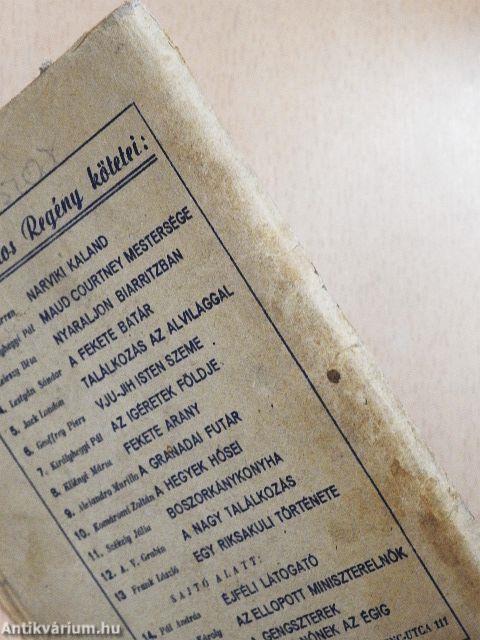 Regény kötetei:
NARVIKI KALAND
Pál MAUD COURTNEY MESTERSÉGE
NYARALJON BIARRITZBAN
4. Sándor A FEKETE BATÁR
5. Jack London TALÁLKOZÁS AZ ALVILÁGGAL
6. Geoffrey Piers VJU-JIH ISTEN SZEME
7. Királyhegyi Pál AZ IGÉRETEK FÖLDJE
8. Mária FEKETE ARANY
9. Alejandro Murillo A GRANADAI FUTÁR
10. Komáromi Zoltán A HEGYEK HŐSEI
11. Székely Júlia BOSZORKÁNYKONYHA
12. A. V. A NAGY TALÁLKOZÁS
13 Frank László EGY RIKSAKULI TÖRTÉNETE
SAJTÓ ALATT:
14. Pál András ÉJFÉLI LÁTOGATÓ
Károly AZ ELLOPOTT MINISZTERELNÖK
A GENGSZTEREK
NŐNEK AZ ÉGIG
UTCA 111
Antikvárium.hu
http://www.antikvarium.hu